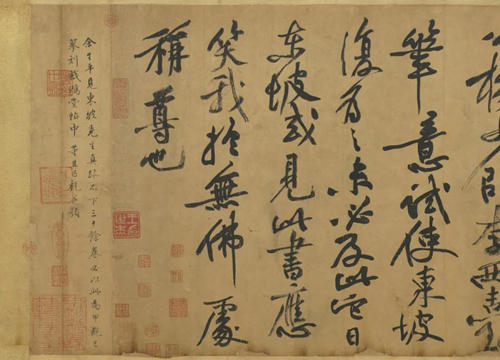 楊少師李西臺
筆意試使東坡
復為之未必及此它日
東坡或見此書應
笑我於無佛處
稱尊也
余生平見東坡先生真跡不下三十餘卷必以此為甲觀已
摹刻戲鴻堂帖中 董其昌觀並題